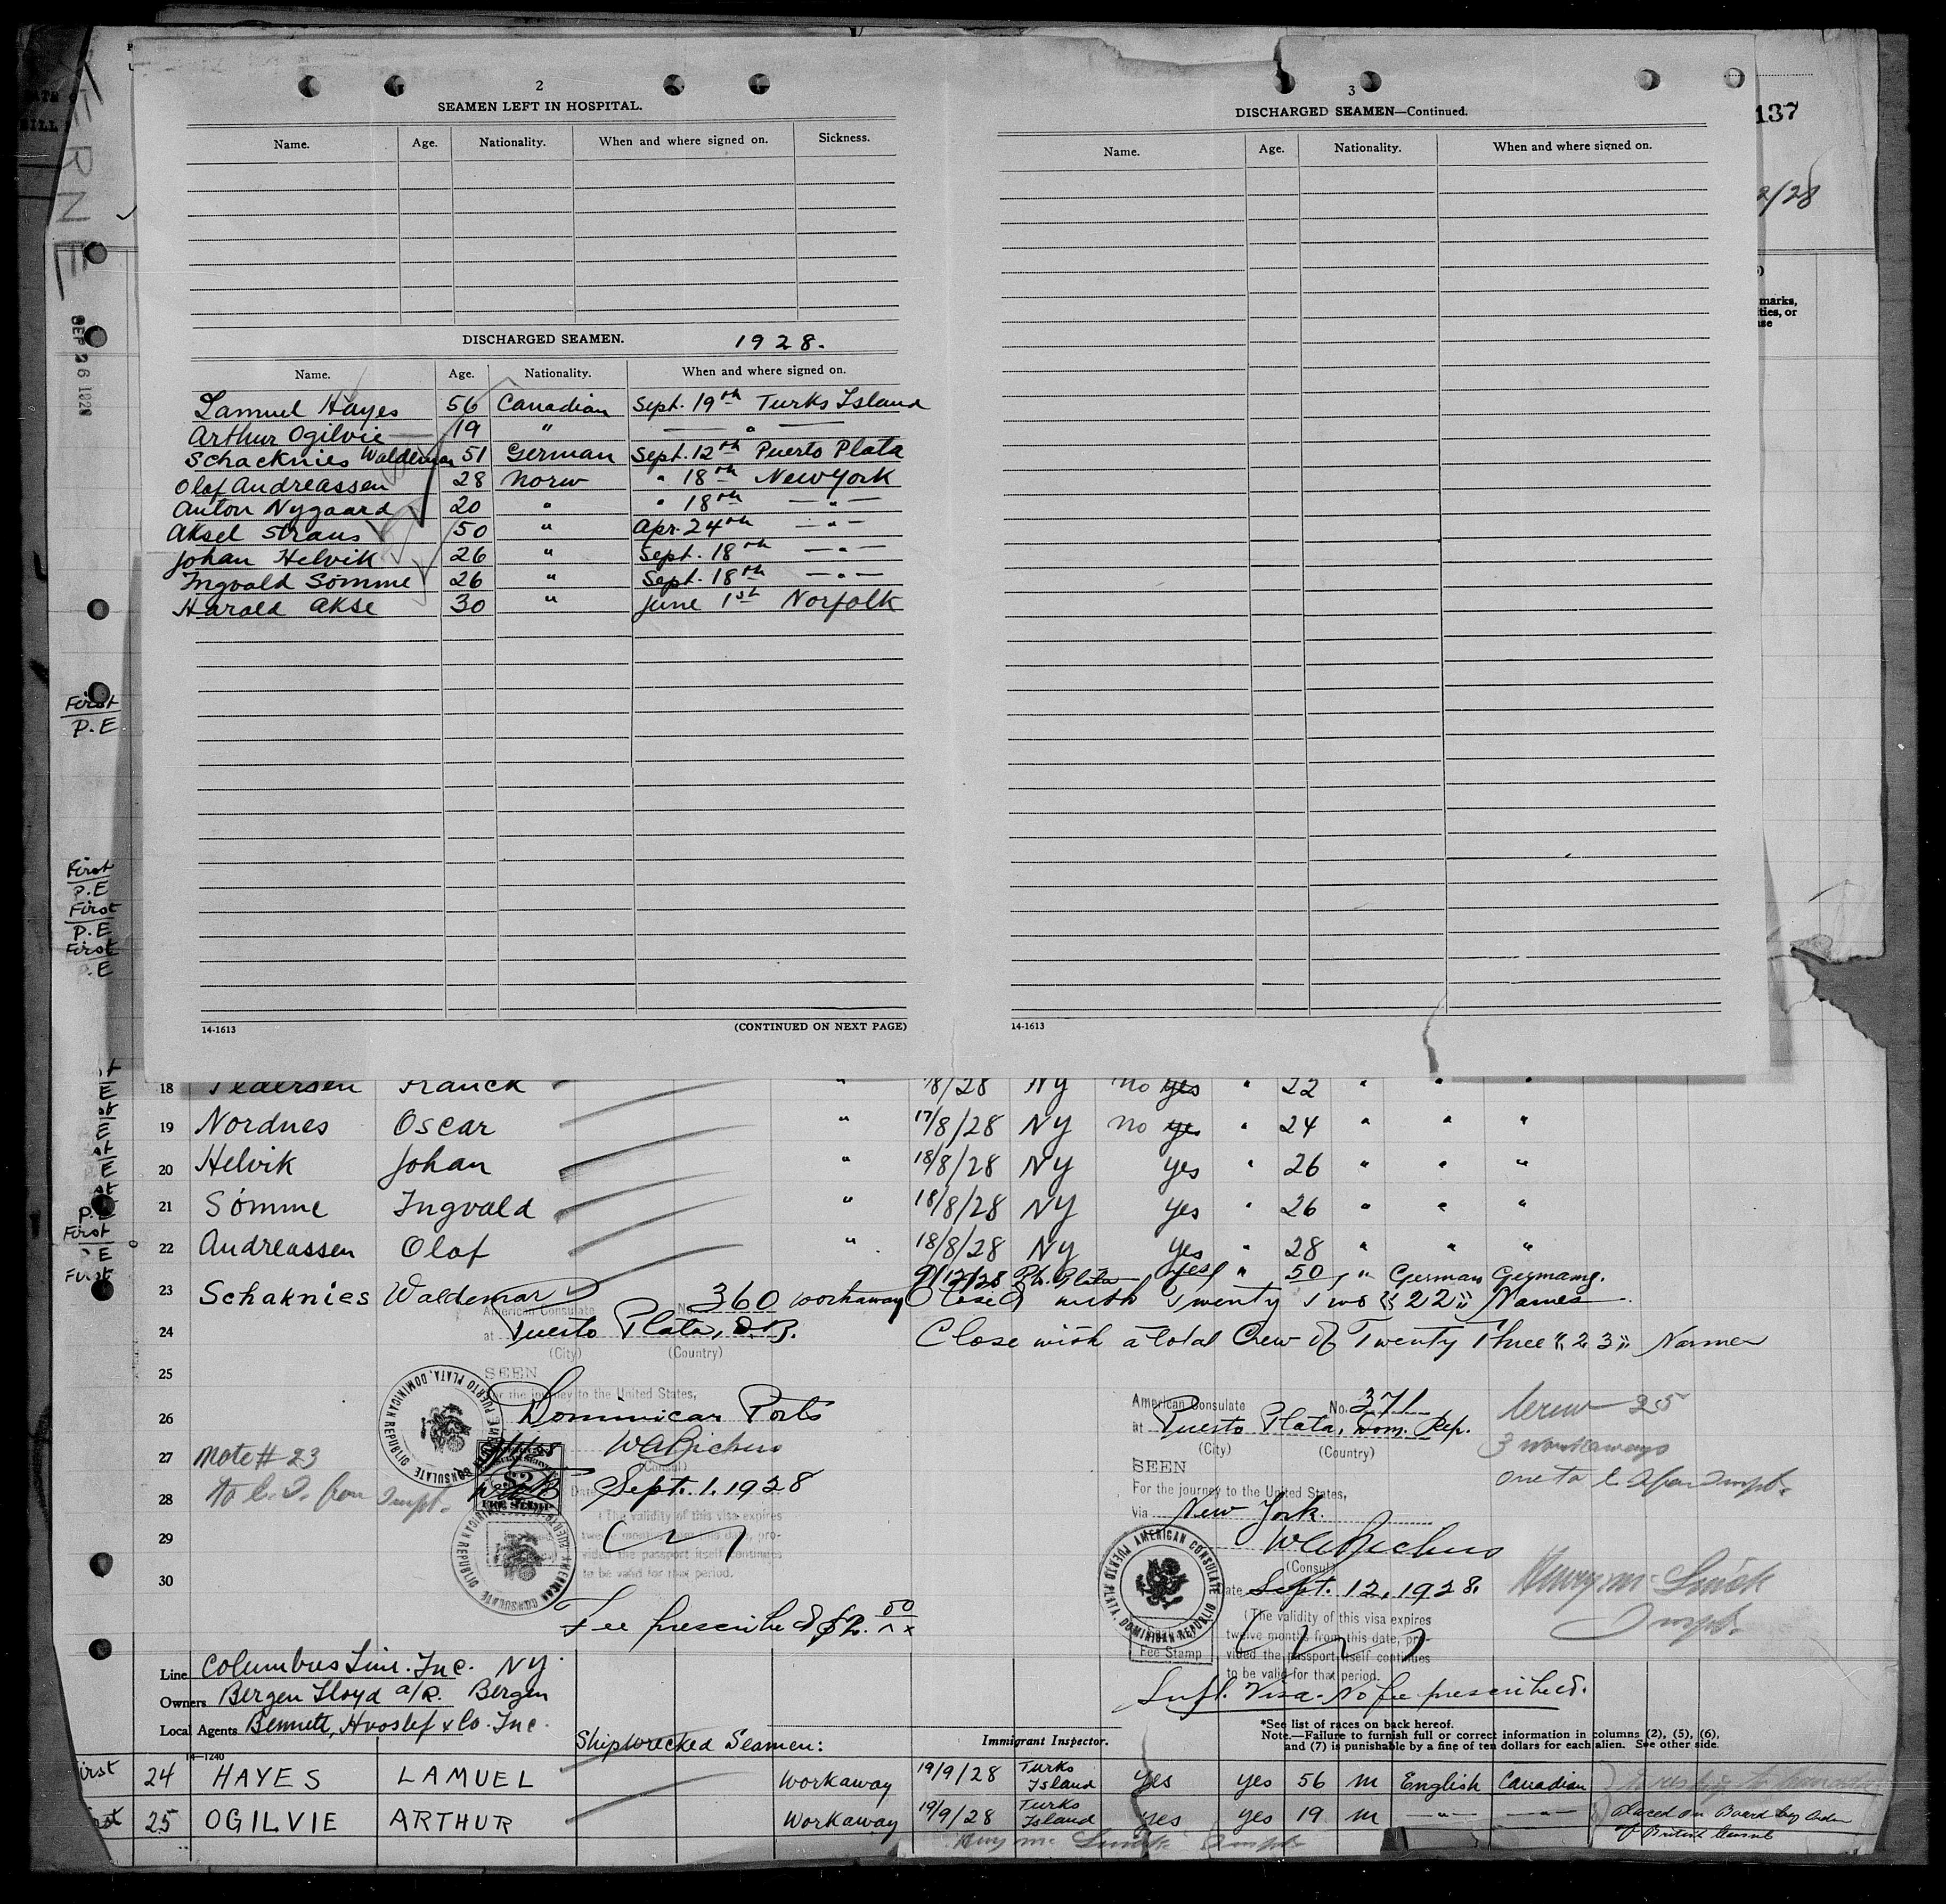 2
SEAMEN LEFT IN HOSPITAL.
Name. Age. Nationality. When and where signed on. Sickness.
DISCHARGED SEAMEN. 1928.
Name. Age. Nationality. When and where signed on.
Lamuel Hayes 56 Canadian Sept. 19th Turks Island
Arthur Ogilvie 19 " — " —
Schacknies Waldemar 51 German Sept. 12th Puerto Plata
Olaf Andreassen 28 Norw " 18th New York
Anton Nygaard 20 " " 18th — " —
Aksel Straus 50 " Apr. 24th — " —
Johan Helvik 26 " Sept. 18th — " —
Ingvald Sömme 26 " Sept. 18th — " —
Harald Akse 30 " June 1st Norfolk
14-1613 (CONTINUED ON NEXT PAGE)
3
DISCHARGED SEAMEN—Continued.
Name. Age. Nationality. When and where signed on.
14-1613
137
2/28
marks,
ties, or
ERNE
SEP 26 1928
First
P.E
First
P.E
First
P.E
First
P.E
18 Pedersen Franck " 18/28 NY no yes " 22 " " "
19 Nordnes Oscar " 17/8/28 NY no yes " 24 " " "
20 Helvik Johan " 18/8/28 NY yes " 26 " " "
21 Sömme Ingvald " 18/8/28 NY yes " 26 " " "
22 Andreassen Olaf " 18/8/28 NY yes " 28 " " "
23 Schaknies Waldemar workaway 9/12/28 Pt. Plata yes " 50 " German Germany.
Closed with Twenty Two "22" Names
24 Close with a total Crew of Twenty Three "23" Names
25
26
27
28
29
30
American Consulate No. 360
at Puerto Plata, D.R.
(City) (Country)
SEEN
For the journey to the United States,
Dominican Ports
WABickers
(Consul)
Date Sept. 1. 1928
(The validity of this visa expires
twelve months from this date, pro-
vided the passport itself continues
to be valid for that period.
Fee prescribed $2.00
AMERICAN CONSULATE PUERTO PLATA, DOMINICAN REPUBLIC
$2
FEE STAMP
Note # 23
American Consulate No. 371
at Puerto Plata, Dom. Rep.
(City) (Country)
SEEN
For the journey to the United States,
Via New York.
WABickers
(Consul)
Date Sept. 12, 1928.
(The validity of this visa expires
twelve months from this date, pro-
vided the passport itself continues
to be valid for that period.
AMERICAN CONSULATE PUERTO PLATA, DOMINICAN REPUBLIC
Fee Stamp
Supl. Visa - No fee prescribed.
Crew 25
3 workaways
Line Columbus Line. Inc. NY.
Owners Bergen Lloyd a/s. Bergen
Local Agents Bennett, Hvoslef & Co. Inc.
14—1240
Shipwrecked Seamen:
Immigrant Inspector.
*See list of races on back hereof.
Note.—Failure to furnish full or correct information in columns (2), (5), (6),
and (7) is punishable by a fine of ten dollars for each alien. See other side.
First 24 HAYES LAMUEL Workaway 19/9/28 Turks Island Yes yes 56 m English Canadian
25 OGILVIE ARTHUR Workaway 19/9/28 Turks Island yes yes 19 m — " — — " — placed on Board by Order of British Consul